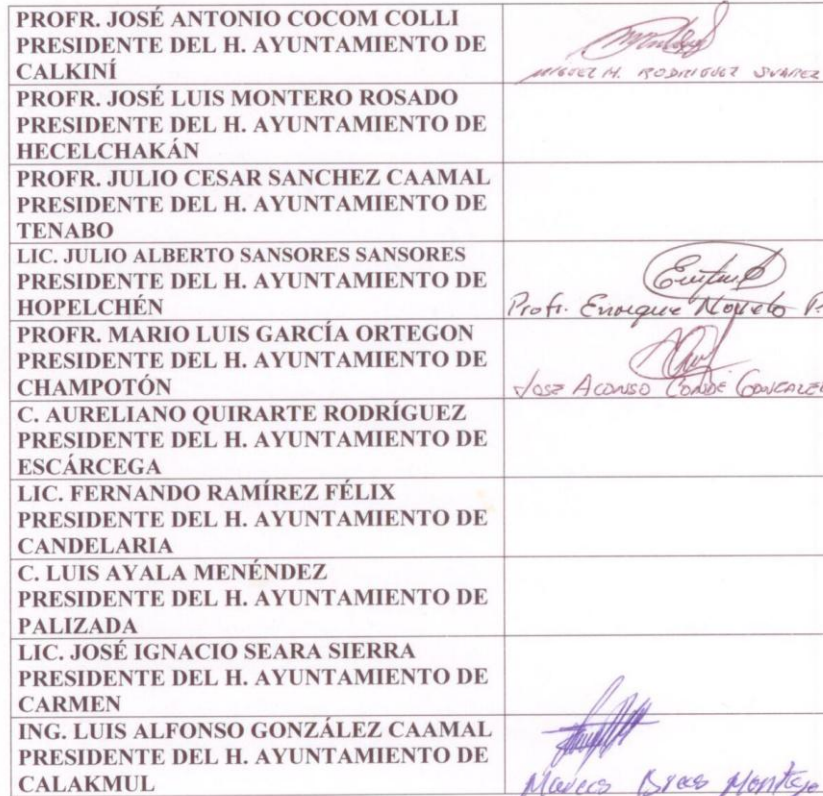 PROFR. JOSÉ ANTONIO COCOM COLLI
PRESIDENTE DEL H. AYUNTAMIENTO DE
CALKINÍ
MIGUEL H. RODRIGUEZ SUAREZ
PROFR. JOSÉ LUIS MONTERO ROSADO
PRESIDENTE DEL H. AYUNTAMIENTO DE
HECELCHAKÁN
PROFR. JULIO CESAR SANCHEZ CAAMAL
PRESIDENTE DEL H. AYUNTAMIENTO DE
TENABO
LIC. JULIO ALBERTO SANSORES SANSORES
PRESIDENTE DEL H. AYUNTAMIENTO DE
HOPELCHÉN
Profr. Enrique P.
PROFR. MARIO LUIS GARCÍA ORTEGON
PRESIDENTE DEL H. AYUNTAMIENTO DE
CHAMPOTÓN
JOSE CONDE
C. AURELIANO QUIRARTE RODRÍGUEZ
PRESIDENTE DEL H. AYUNTAMIENTO DE
ESCÁRCEGA
LIC. FERNANDO RAMÍREZ FÉLIX
PRESIDENTE DEL H. AYUNTAMIENTO DE
CANDELARIA
C. LUIS AYALA MENÉNDEZ
PRESIDENTE DEL H. AYUNTAMIENTO DE
PALIZADA
LIC. JOSÉ IGNACIO SEARA SIERRA
PRESIDENTE DEL H. AYUNTAMIENTO DE
CARMEN
ING. LUIS ALFONSO GONZÁLEZ CAAMAL
PRESIDENTE DEL H. AYUNTAMIENTO DE
CALAKMUL